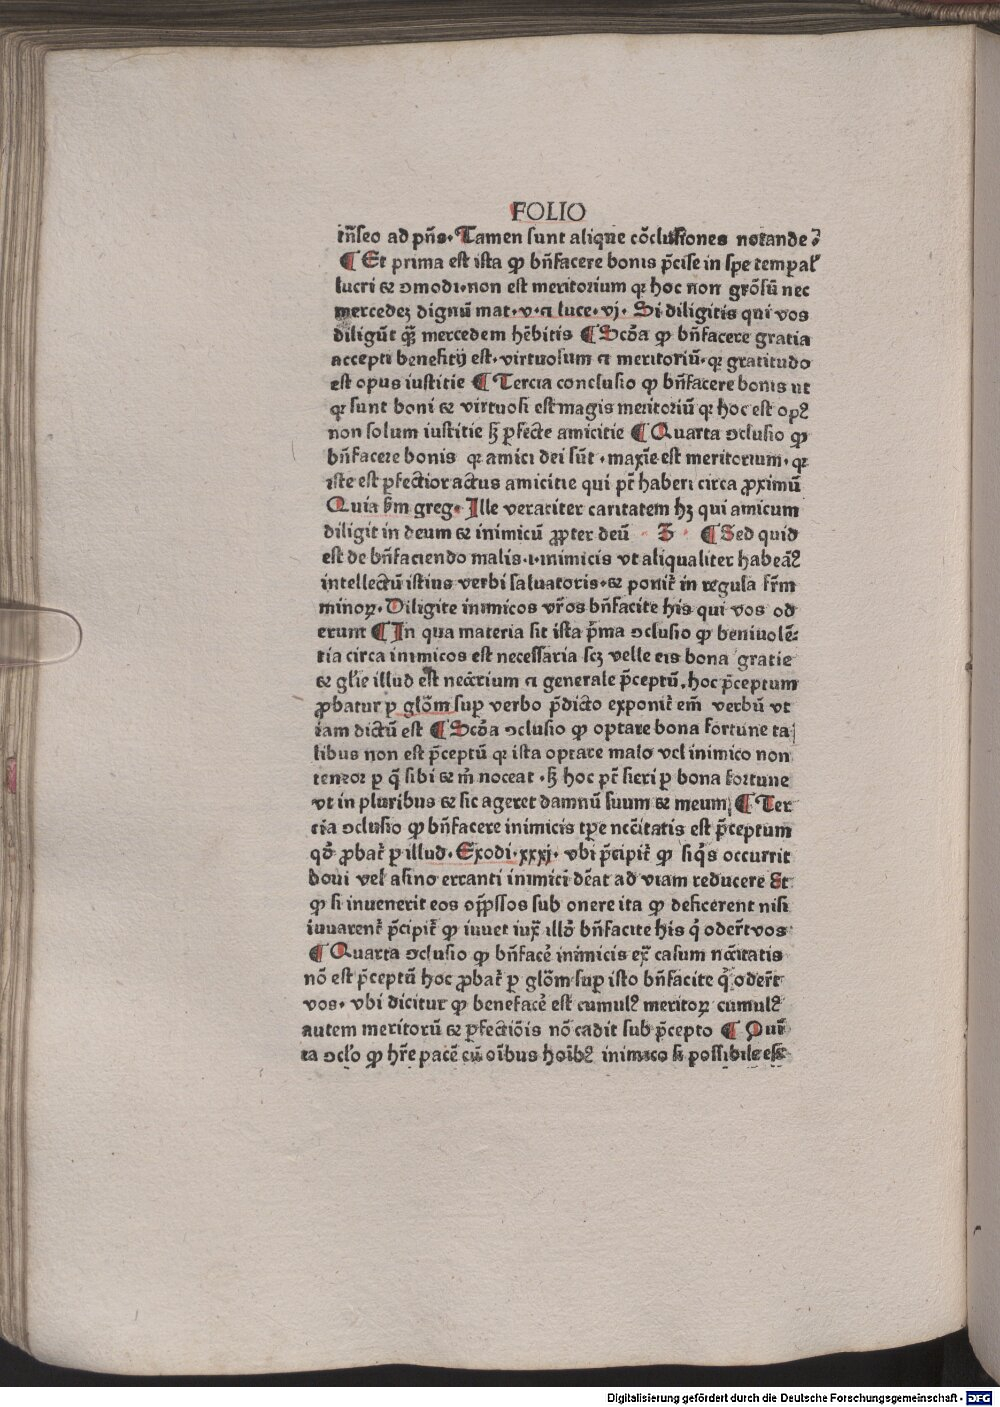 FOLIO
tñseo ad pñs. Tamen sunt alique cõclusiones notande ꝫ
¶ Et prima est ista ꝙ bñfacere bonis p̃cise in spe tempal᷒
lucri ⁊ ꝯmodi·non est meritorium qꝛ hoc non grõsũ nec
mercedeꝫ dignũ mat·v·⁊ luce·vj. Si diligitis qui vos
diligũt qm̃ mercedem hẽbitis ¶ Scõa ꝙ bñfacere gratia
accepti benefitij est·virtuosum ⁊ meritoriũ·qꝛ gratitudo
est opus iustitie ¶ Tercia conclusio ꝙ bñfacere bonis ut
qꝛ sunt boni ⁊ virtuosi est magis meritoriũ qꝛ hoc est opꝰ
non solum iustitie sꝫ ꝑfecte amicitie ¶ Quarta ꝯclusio ꝙ
bñfacere bonis qꝛ amici dei sũt ·maxĩe est meritorium·qꝛ
iste est ꝑfectior actus amicitie qui pt̃ haberi circa ꝓximũ
Quia ẜm greg· Ille veraciter caritatem hꝫ qui amicum
diligit in deum ⁊ inimicũ ꝓpter deũ · 3 · ¶ Sed quid
est de bñfaciendo malis·i·inimicis vt aliqualiter habeãꝰ
intellectũ istius verbi saluatoris·⁊ ponit᷒ in regula fr̃m
minoꝝ. Diligite inimicos vr̃os bñfacite his qui vos od
erunt ¶ In qua materia sit ista p̃ma ꝯclusio ꝙ beniuolẽ-
tia circa inimicos est necessaria scꝫ velle eis bona gratie
⁊ gl̃ie illud est necc̃rium ⁊ generale p̃ceptũ, hoc p̃ceptum
ꝓbatur ꝑ glõm suꝑ verbo p̃dicto exponit᷒ em̃ verbũ vt
iam dictũ est ¶ Scõa ꝯclusio ꝙ optare bona fortune ta
libus non est p̃ceptũ qꝛ ista optare malo vel inimico non
teneor ꝑ q̃ sibi ⁊ m̃ noceat ·sꝫ hoc pt̃ fieri ꝑ bona fortune
vt in pluribus ⁊ sic ageret damnũ suum ⁊ meum ¶ Ter
cia ꝯclusio ꝙ bñfacere inimicis tꝑe ncc̃itatis est p̃ceptum
qõ ꝓbat᷒ ꝑ illud· Exodi·xxxj· vbi p̃cipit᷒ ꝙ siq̃s occurrit
boui vel asino erranti inimici dẽat ad viam reducere Et
ꝙ si inuenerit eos opp̃ssos sub onere ita ꝙ deficerent nisi
iuuarent᷒ p̃cipit᷒ ꝙ iuuet iux̃ illõ bñfacite his q̃ oder̃t vos
¶ Quarta ꝯclusio ꝙ bñfacẽ inimicis ex̃ casum ncc̃itatis
nõ est p̃ceptũ hoc ꝓbat᷒ ꝑ glõm suꝑ isto bñfacite q̃ oder̃t
vos· vbi dicitur ꝙ benefacẽ est cumulꝰ meritoꝝ cumulꝰ
autem meritorũ ⁊ ꝑfectiõis nõ cadit sub p̃cepto ¶ Quĩ
ta ꝯcl̃o ꝙ hr̃e pacẽ cũ oĩbus hoĩbꝰ inimico si possibile est
Digitalisierung gefördert durch die Deutsche Forschungsgemeinschaft - DFG